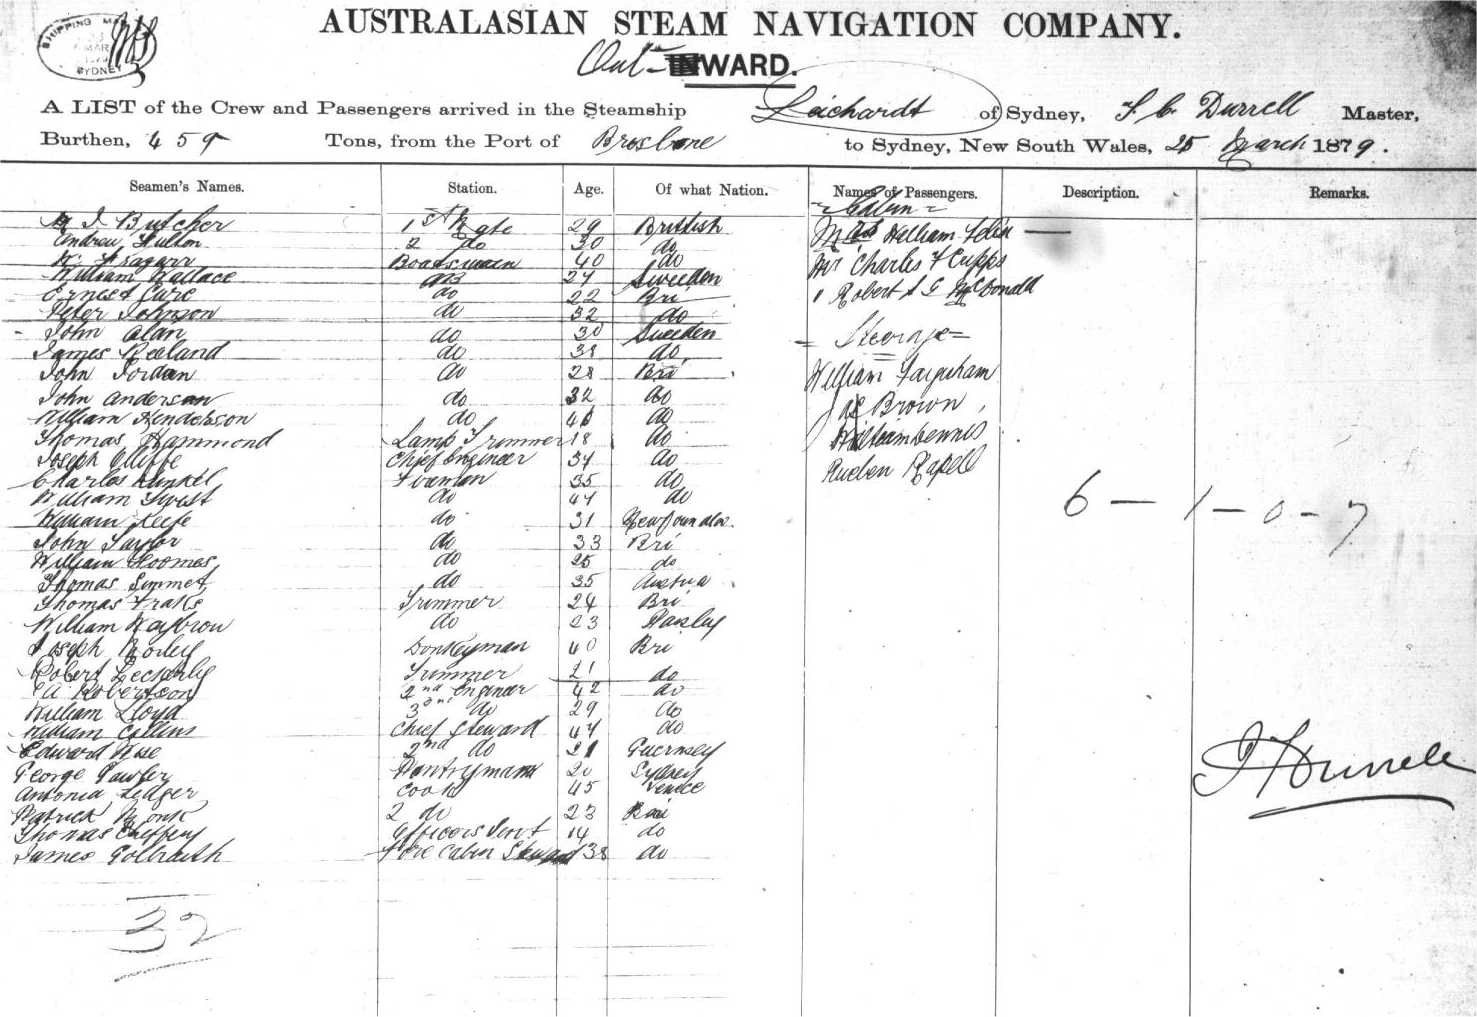 SHIPPING MA
MAR
SYDNEY
AUSTRALASIAN STEAM NAVIGATION COMPANY.
Out-INWARD.
A LIST of the Crew and Passengers arrived in the Steamship Leichardt of Sydney, Durrell Master,
Burthen, 459 Tons, from the Port of Brisbane to Sydney, New South Wales, 25 March 1879.
Seamen's Names. Station. Age. Of what Nation. Names of Passengers. Description. Remarks.
Butcher 1st Mate 29 British
Andrew Fulton 2 do 30 do
W. 40 do
Boatswain
William Wallace AB 27 Sweeden
Ernest do 22 Bri
Peter Johnson do 32 do
John Alan do 30 Sweeden
James do 38 do
John Jordan do 28 Bri
John Anderson do 32 do
William Henderson do do
Thomas Hammond Lamp Trimmer 18 do
Joseph Chief Engineer do
Charles Kunkel Fireman 35 do
William Twist do 47 do
William Keefe do 31
John Taylor do 33 Bri
William do 25 do
Thomas do 35 Austria
Thomas Trimmer 24 Bri
William do 23 Paisley
Joseph Morley Donkeyman 40 Bri
Robert Trimmer 21 do
Robertson 2nd Engineer 42 do
William Lloyd 3rd do 29 do
William Collins Chief Steward 47 do
Edward Wise 2nd do 21 Guernsey
George Pantryman 20 Sydney
Antonia Ledger Cook 45 Venice
Patrick Monk 2 do 23 Bri
Thomas Officers Servt 14 do
James Fore Cabin Steward 38 do
32
Cabin
William
Mr Charles F Cupps
" Robert McDonald
Steerage
William Farquham
Brown
William Dennis
Rueben
6 - 1 - 0 - 7
Durrell